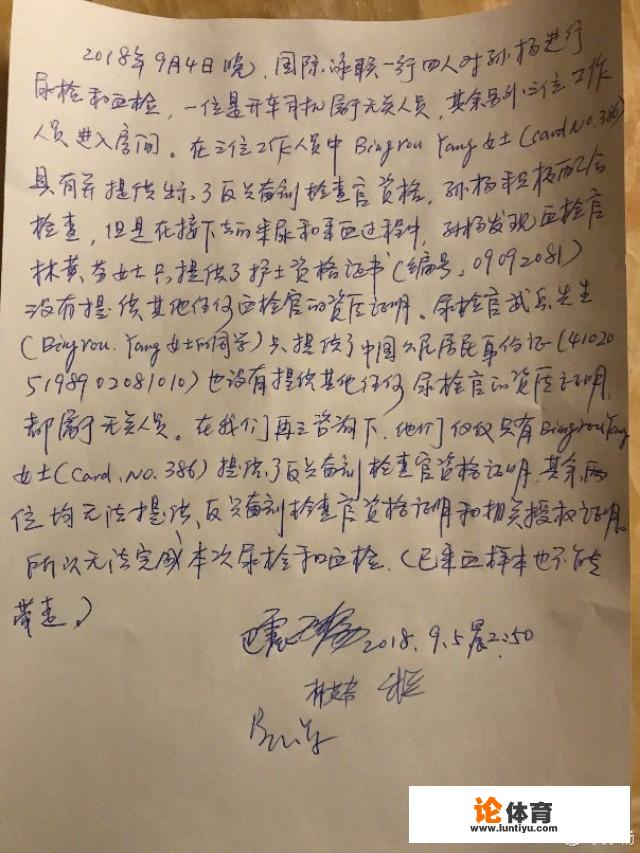 2018年9月4日晚，国际泳联一行四人对孙杨进行
尿检和血检，一位是开车司机属于无关人员，其余另外三位工作
人员进入房间。在三位工作人员中Bingrou Yang女士(Card No.386)
具有并提供出示了反兴奋剂检查官资格，孙杨积极配合
检查，但是在接下去的采尿和采血过程中，孙杨发现血检官
林黄芬女士只提供了护士资格证书(编号：09092081)
没有提供其他任何血检官的资质证明。尿检官武兵先生
(Bingrou.Yang女士的同学)只提供了中国公民居民身份证(41020
5198902081010)也没有提供其他任何尿检官的资质证明,
都属于无关人员。在我们再三咨询下,他们仅仅只有BingrouYang
女士(Card.No.386)提供了反兴奋剂检查官资格证明,其余两
位均无法提供反兴奋剂检查官资格证明和相关授权证明。
所以无法完成本次尿检和血检.(已采血样本也不能
带走。)
2018.9.5晨2:50
论体育
www.luntiyu.com